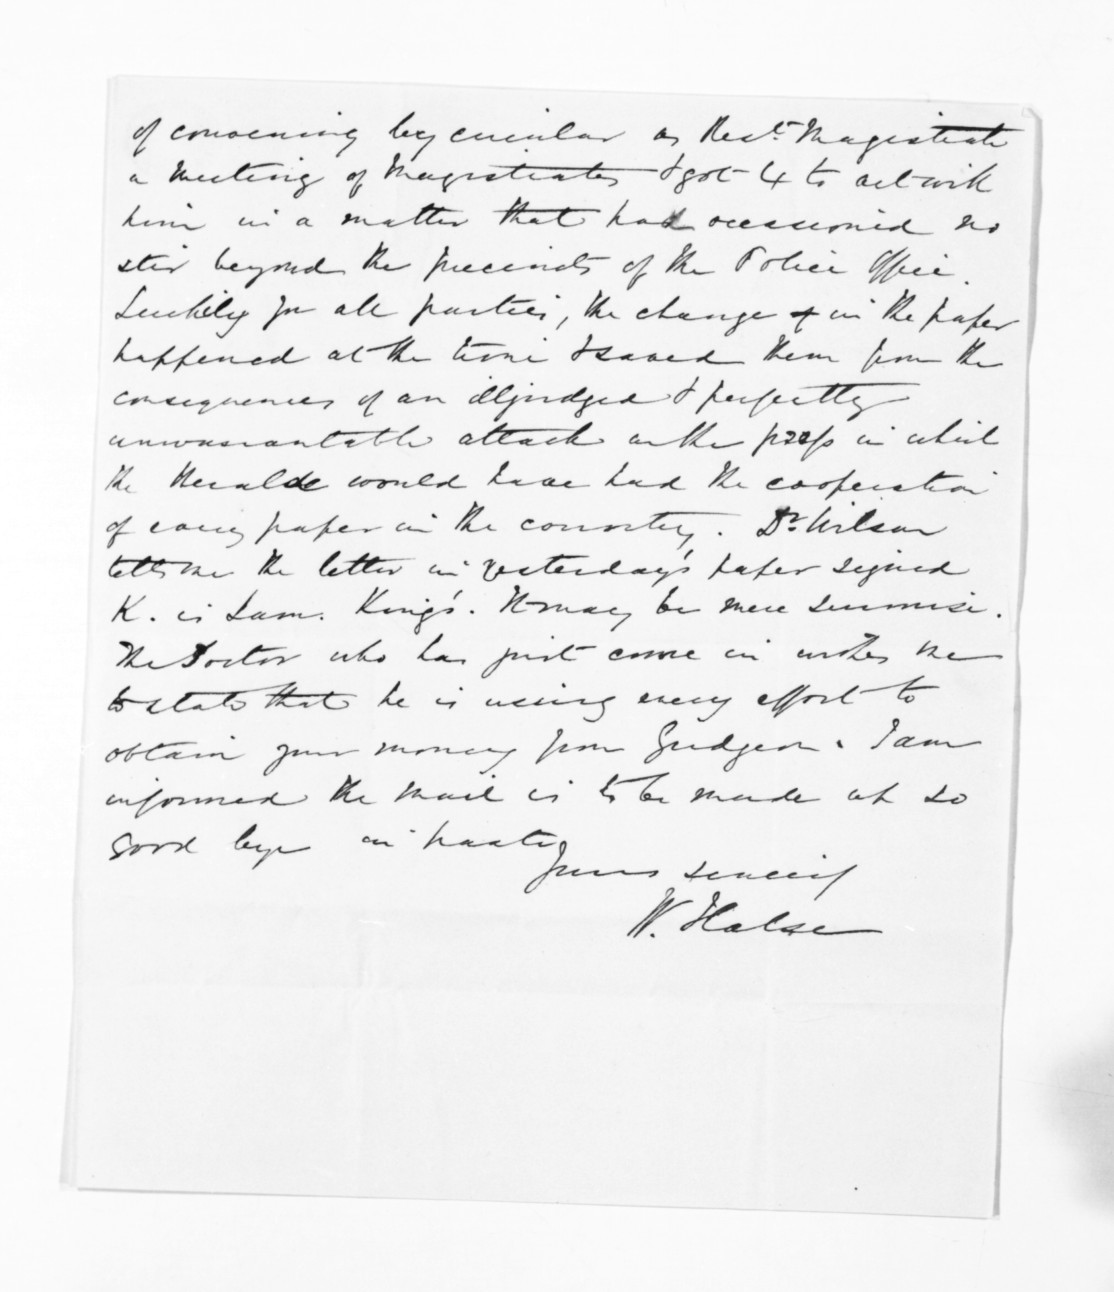 of convening by circular as Rest. Magistrate
a meeting of Magistrates & got 4 to act with
him in a matter that had occasioned no
stir beyond the precincts of the Police Office.
Luckily for all parties, the change & in the paper
happened at the time & saved them from the
consequences of an illjudged & perfectly
unwarrantable attack on the press in which
the Herald would have had the cooperation
of every paper in the country. Dr. Wilson
tells me the letter in yesterday's paper signed
K. is Sam. King's. It may be mere surmise.
The Doctor who has just come in wishes me
to state that he is using every effort to
obtain your money from Gudgeon. I am
informed the mail is to be made up so
good bye in haste
Yours sincerely
W. Halse